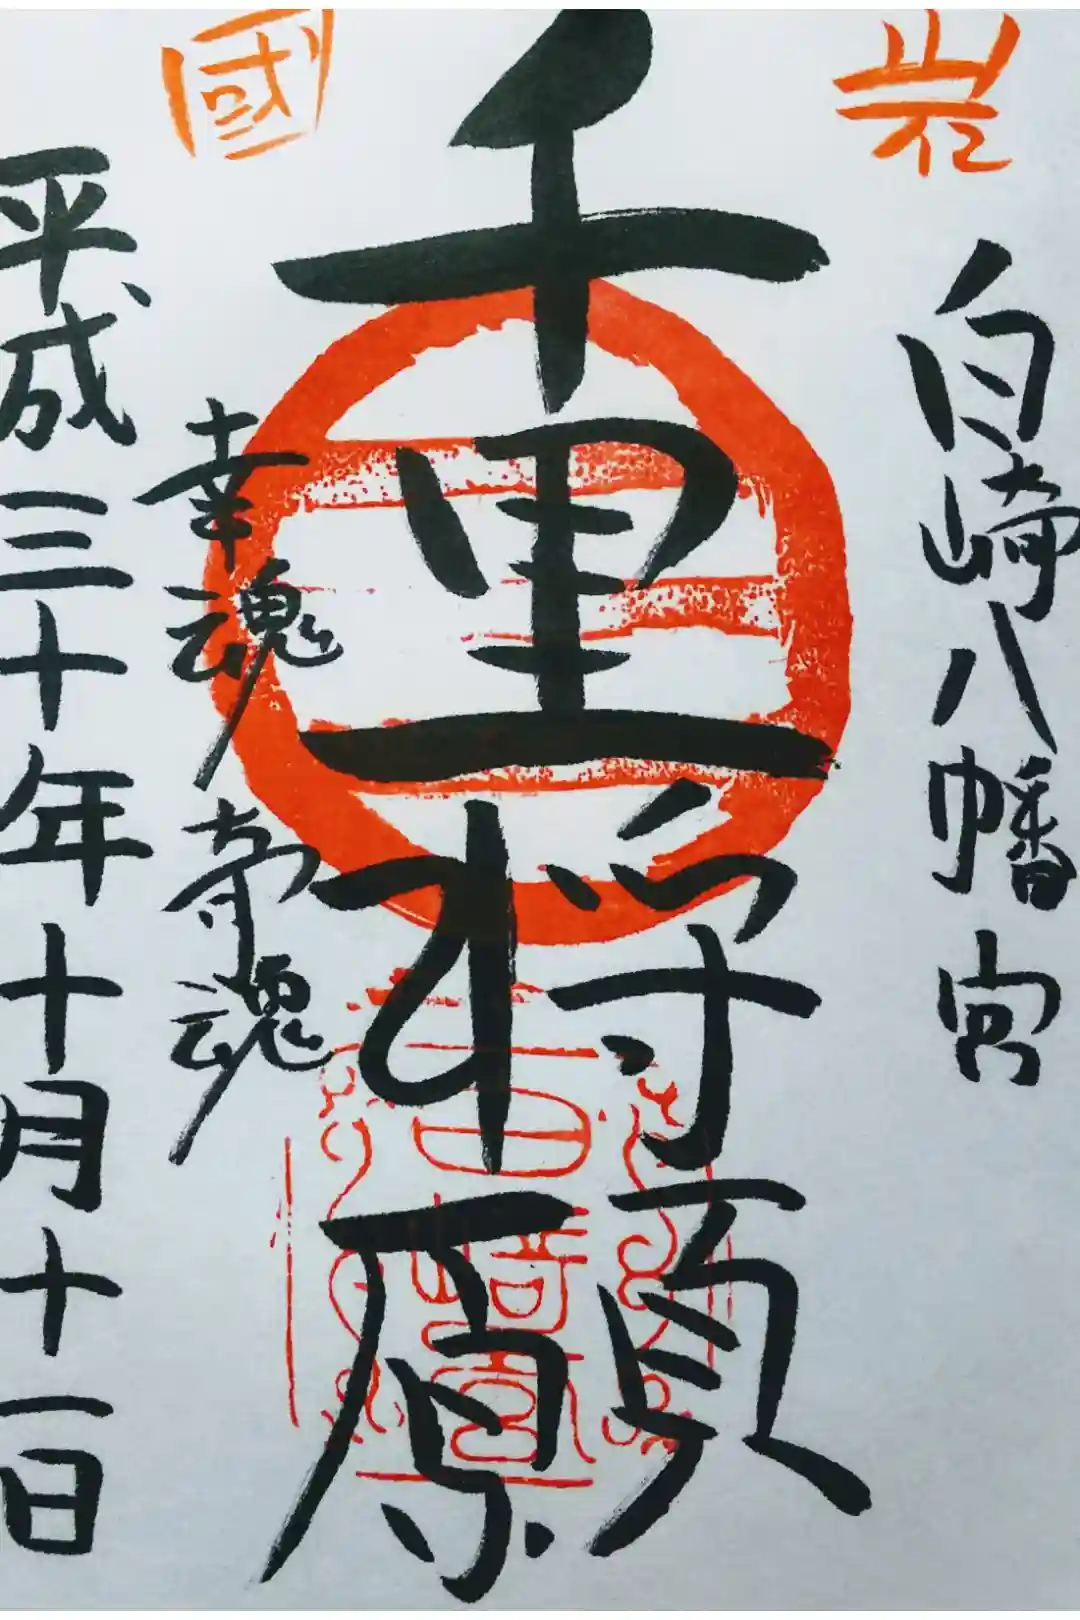 岩
白崎八幡宮
千里将願
白崎宮
國
幸魂奇魂
平成三十年十月十一日